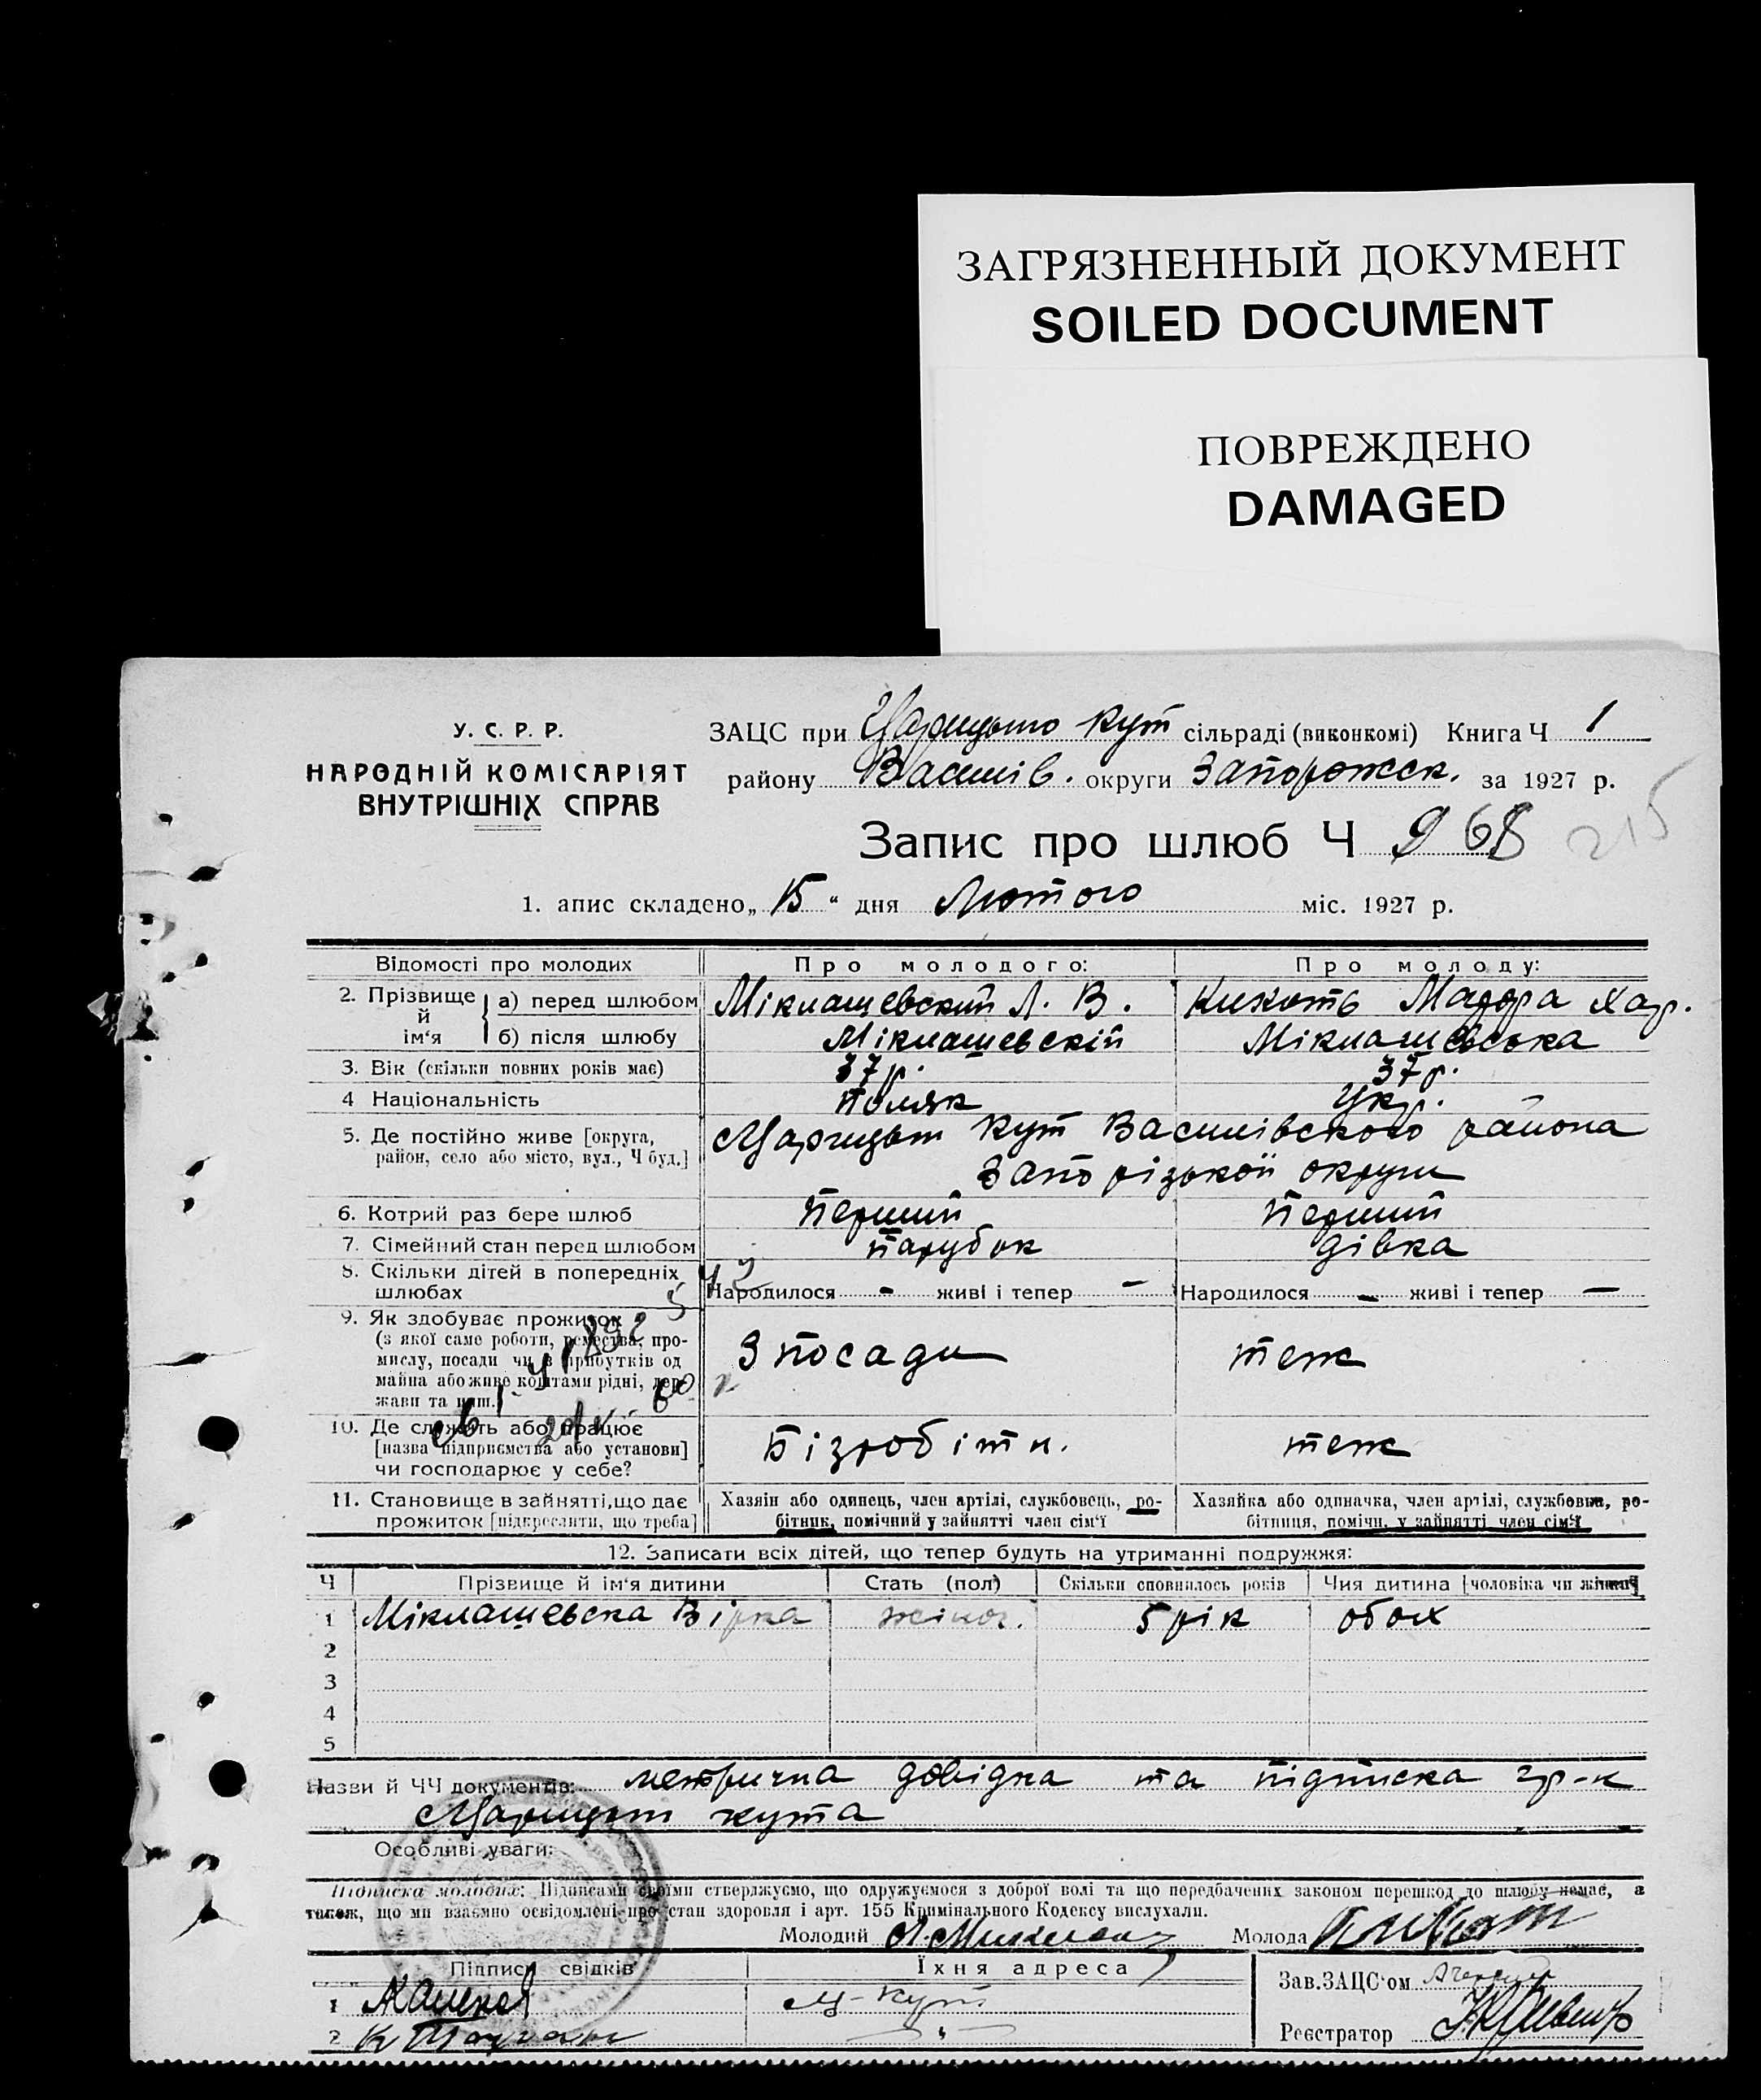 ЗАГРЯЗНЕННЫЙ ДОКУМЕНТ
SOILED DOCUMENT
ПОВРЕЖДЕНО
DAMAGED
У. С. Р. Р.
НАРОДНІЙ КОМІСАРІЯТ
ВНУТРІШНІХ СПРАВ
ЗАЦС при Царицыно Кут сільраді (виконкомі) Книга Ч 1
району Василів. округи Запорожск. за 1927 р.
Запис про шлюб Ч 9 68
215
1. апис складено „ 15 " дня Лютого міс. 1927 р.
Відомості про молодих Про молодого: Про молоду:
2. Прізвище й ім'я а) перед шлюбом Міклашевский Л. В. Кихоть Мадора Хар.
б) після шлюбу Міклашевскій Міклашевська
3. Вік (скільки повних років має) 37 р. 37 р.
4 Національність поляк Укр.
5. Де постійно живе [округа, Царицын Кут Василівского района
район, село або місто, вул., Ч буд.] Запорізької округи
6. Котрий раз бере шлюб Перший Перший
7. Сімейний стан перед шлюбом парубок дівка
8. Скільки дітей в попередніх
шлюбах Народилося - живі і тепер — Народилося - живі і тепер —
9. Як здобуває прожиток
(з якої саме роботи, ремества, про-
мислу, посади чи з прибутків од З посади теж
майна або живе коштами рідні, дер-
жави та инш.)
10. Де служить або працює
[назва підприємства або установи] Бізробітн. теж
чи господарює у себе?
11. Становище в зайнятті, що дає Хазяїн або одинець, член артілі, службовець, ро- Хазяйка або одиначка, член артілі, службовка, ро-
прожиток [підкреслити, що треба] бітник, помічний у зайнятті член сім'ї бітниця, помічн. у зайнятті член сім'ї
12. Записати всіх дітей, що тепер будуть на утриманні подружжя:
Ч Прізвище й ім'я дитини Стать (пол) Скільки сповнилось років Чия дитина [чоловіка чи жінки]
1 Міклашевска Вірка жіноч. 5 рік обох
2
3
4
5
Назви й ЧЧ документів: метрична довідка та підписка гр-к
Царицын кута
Особливі уваги:
Підписка молодих: Підписами своїми стверджуємо, що одружуємося з доброї волі та що передбачених законом перешкод до шлюбу немає, а
також, що ми взаємно освідомлені про стан здоровля і арт. 155 Кримінального Кодексу вислухали.
Молодий Молода
Підписи свідків Їхня адреса Зав. ЗАЦС'ом
1 Ц-Кут
2 "
Реєстратор